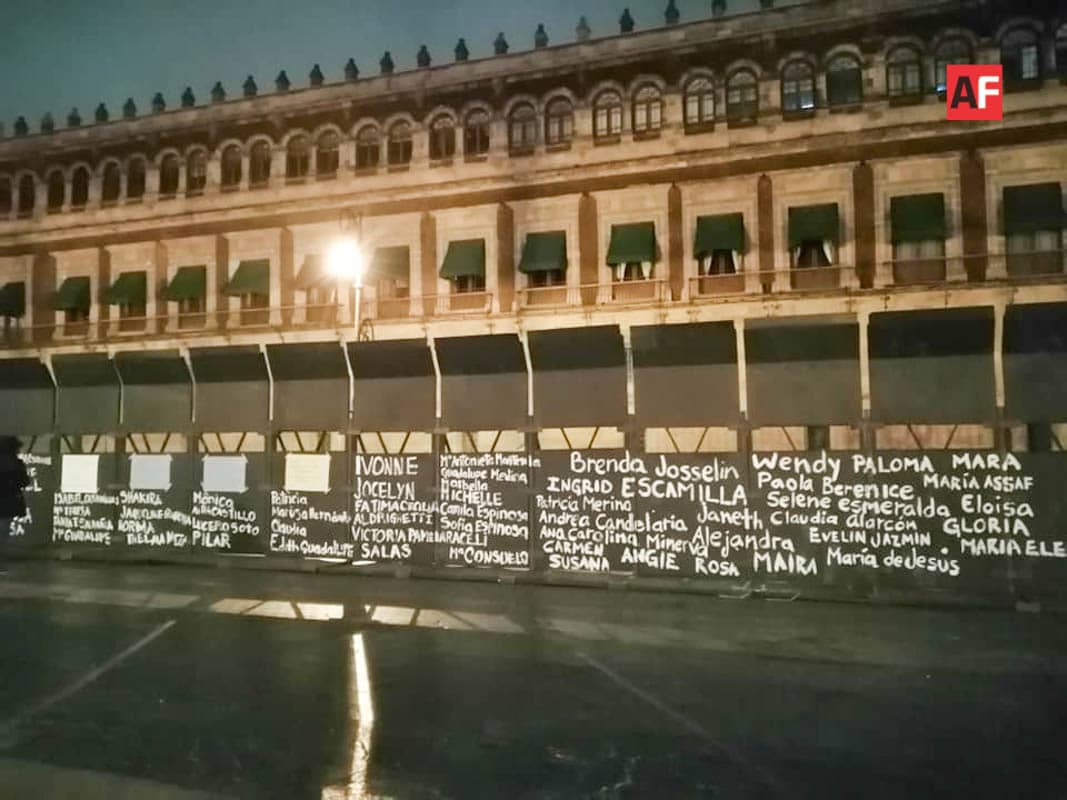 AF
SHAKIRA
NORMA
Mónica
LUCERO SOTO
PILAR
Patricia
Claudia
Edith Guadalupe
IVONNE
JOCELYN
FATIMA CECILIA
ALDRIGHETTI
VICTORIA PAMELA
SALAS
Mª Antonieta
Guadalupe Medina
Marbella
MICHELLE
Camila Espinosa
Sofia Espinosa
ARACELI
Mª CONSUELO
Brenda Josselin
INGRID ESCAMILLA
Patricia Merino
Andrea Candelaria Janeth
Ana Carolina Minerva Alejandra
CARMEN ANGIE
SUSANA ROSA MAIRA
Wendy PALOMA MARA
Paola Berenice MARÍA ASSAF
Selene esmeralda Eloisa
Claudia alarcón GLORIA
EVELIN JAZMIN MARIA ELE
María de Jesus